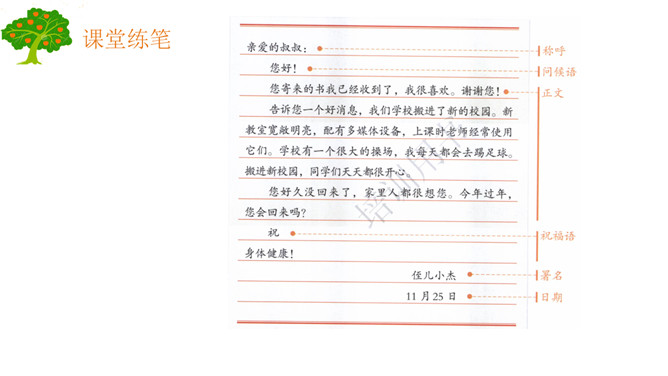 课堂练笔
亲爱的叔叔：
称呼
您好！
问候语
您寄来的书我已经收到了，我很喜欢。谢谢您！
正文
告诉您一个好消息，我们学校搬进了新的校园。新
教室宽敞明亮，配有多媒体设备，上课时老师经常使用
它们。学校有一个很大的操场，我每天都会去踢足球。
搬进新校园，同学们天天都很开心。
您好久没回来了，家里人都很想您。今年过年，
您会回来吗？
祝
祝福语
身体健康！
侄儿小杰
署名
11月25日
日期
培训用书